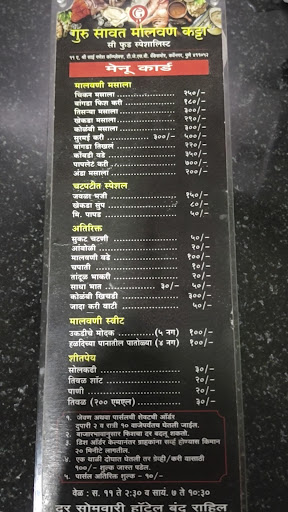 गुरु सावंत मालवण कट्टा
सी फुड स्पेशालिस्ट
मेनू कार्ड
मालवणी मसाला
चिकन मसाला २५०/-
बांगडा फिश करी १८०/-
तिसऱ्या मसाला ३००/-
खेकडा मसाला २९०/-
कोळंबी मसाला ३००/-
सुरमई करी ३००/- ५००/-
बांगडा तिखलं २२०/-
कोंबडी वडे ३५०/-
पापलेट करी ७००/-
अंडा मसाला २००/-
चटपटीत स्पेशल
जवळा भजी १५०/-
खेकडा सुप ८०/-
मि. पापड ५०/-
अतिरिक्त
सुकट चटणी ५०/-
आंबोळी २०/-
मालवणी वडे १००/-
चपाती १०/-
तांदूळ भाकरी २०/-
साधा भात ३०/- ५०/-
कोळंबी खिचडी ३००/-
जादा करी वाटी ५०/-
मालवणी स्वीट
उकडीचे मोदक (५ नग) १००/-
हळदिच्या पानातील पातोळ्या (४ नग) १००/-
शीतपेय
सोलकढी ३०/-
तिवळ शॉट २०/-
पाणी २०/-
तिवळ (२०० एमएल) ३०/-
१. जेवण अथवा पार्सलची शेवटची ऑर्डर
दुपारी २ व रात्री १० वाजेपर्यंतच घेतली जाईल.
२. बाजारभावानुसार किंमतीचा दर बदलू शकतो.
३. डिश ऑर्डर केल्यानंतर ग्राहकांना सर्व्ह होण्यास किमान
२० मिनीटे लागतील.
४. एक थाळी दोघात घेतली तर ग्रेव्ही/करी यासाठी
१००/- शुल्क जास्त पडेल.
५. पार्सल अतिरिक्त शुल्क - १०/-
वेळ : स. ११ ते २:३० व सायं. ७ ते १०:३०
दर सोमवारी हॉटेल बंद राहिल